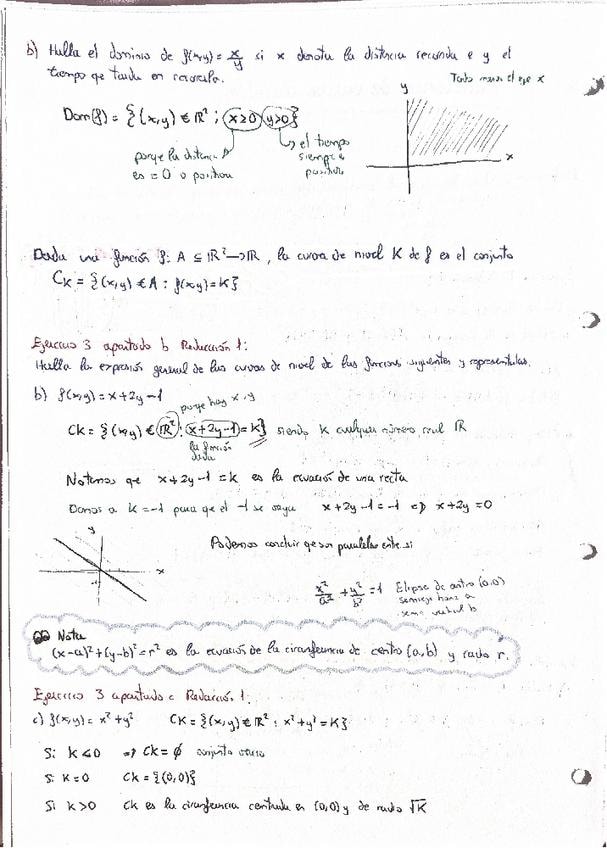 b) Halla el dominio de f(x,y) = x/y si x denota la distancia recorrida e y el
tiempo qe tarda en recorrerla.
Todo menos el eje x
y
Dom(f) = {(x,y) ∈ ℝ² ; x≥0, y>0}
porqe la distancia
es = 0 o positiva
el tiempo
siempre es
positivo
x
Dada una función f: A ⊆ ℝ² → ℝ, la curva de nivel K de f es el conjunto
Ck = {(x,y) ∈ A : f(x,y) = K}
Ejercicio 3 apartado b Redacción 1:
Halla la expresión general de las curvas de nivel de las funciones siguientes y represéntalas.
b) f(x,y) = x+2y-1
porqe hay x, y
Ck = {(x,y) ∈ ℝ² : x+2y-1 = K} siendo K cualquier número real ℝ
la función
dada
Notemos que x+2y-1 = k es la ecuación de una recta
Damos a k=-1 para qe el -1 se vaya x+2y-1=-1 => x+2y=0
y
x
Podemos concluir qe son paralelas entre si
x²/a² + y²/b² = 1 Elipse de centro (0,0)
semieje horiz a
seme vertical b
Nota
(x-a)²+(y-b)²=r² es la ecuación de la circunferencia de centro (a,b) y radio r.
Ejercicio 3 apartado c Redacción 1.
c) f(x,y) = x²+y² Ck = {(x,y) ∈ ℝ² : x²+y² = K}
Si k<0 => Ck = ∅ conjunto vacio
Si k=0 Ck = {(0,0)}
Si k>0 Ck es la circunferencia centrada en (0,0) y de radio √K